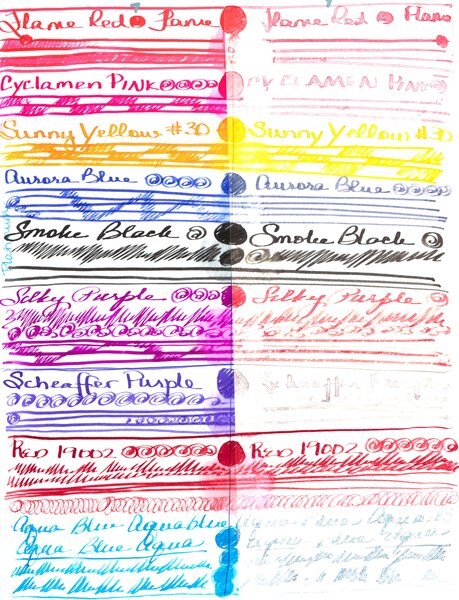 Flame Red Flame Flame Red Flame
Cyclamen Pink Cyclamen Pink
Sunny Yellow #30 Sunny Yellow #30
Aurora Blue Aurora Blue
Smoke Black Smoke Black
Silky Purple Silky Purple
Scheaffer Purple Scheaffer Purple
Red 19002 Red 19002
Aqua Blue Aqua Blue
Aqua Blue Aqua